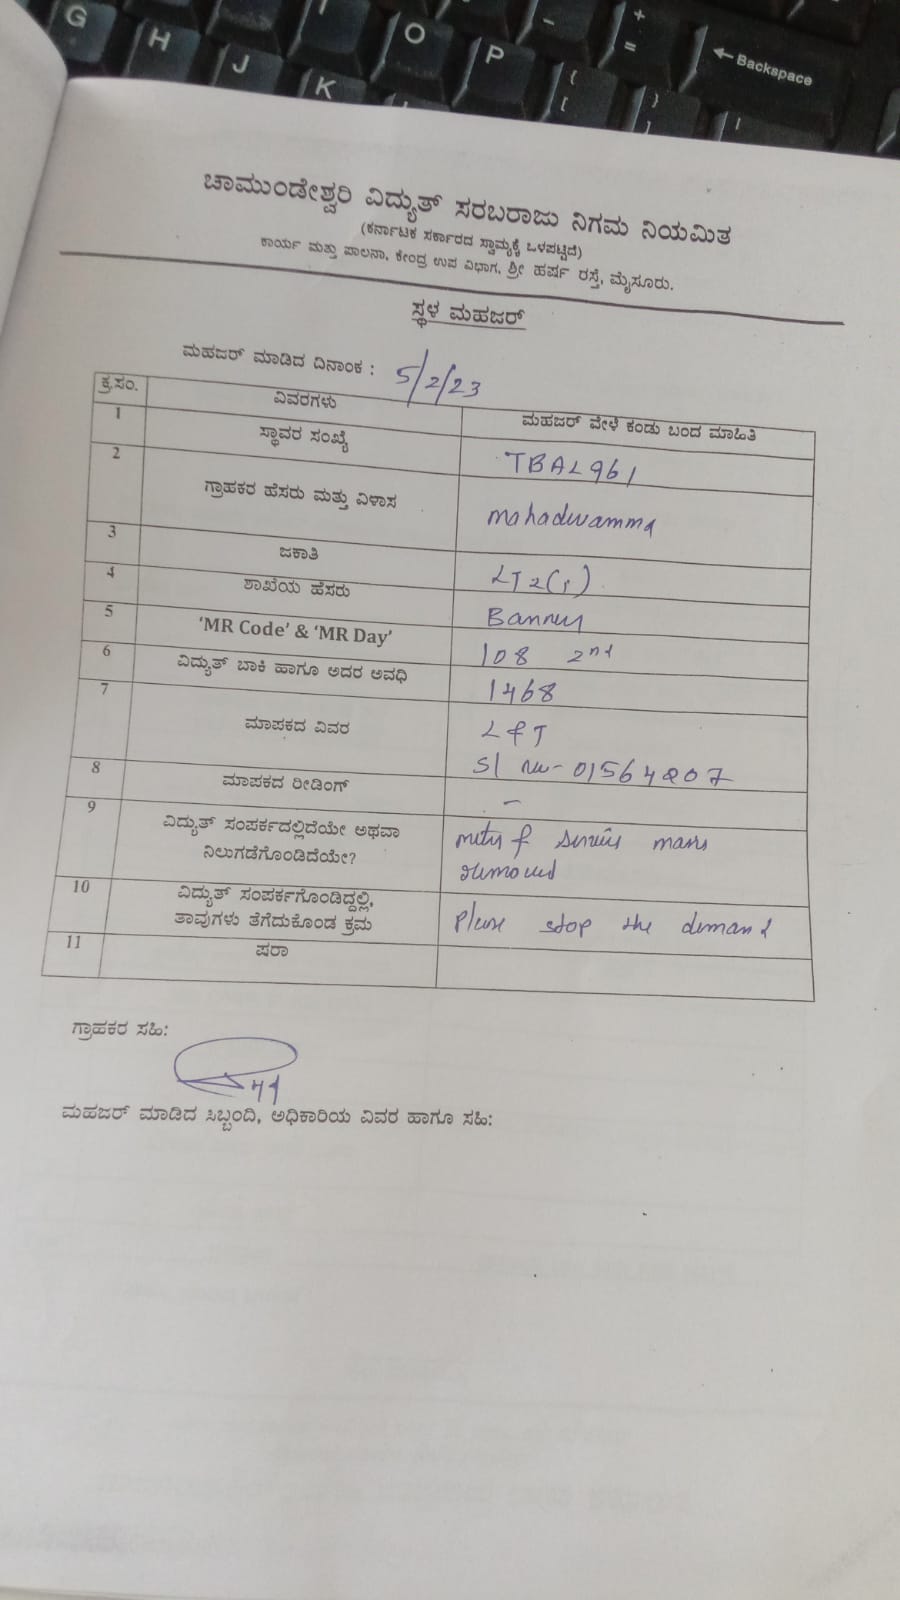 G H J K I O P { [ } ] + = - ← Backspace
ಚಾಮುಂಡೇಶ್ವರಿ ವಿದ್ಯುತ್ ಸರಬರಾಜು ನಿಗಮ ನಿಯಮಿತ
(ಕರ್ನಾಟಕ ಸರ್ಕಾರದ ಸ್ವಾಮ್ಯಕ್ಕೆ ಒಳಪಟ್ಟಿದೆ)
ಕಾರ್ಯ ಮತ್ತು ಪಾಲನಾ, ಕೇಂದ್ರ ಉಪ ವಿಭಾಗ, ಶ್ರೀ ಹರ್ಷ ರಸ್ತೆ, ಮೈಸೂರು.
ಸ್ಥಳ ಮಹಜರ್
ಮಹಜರ್ ಮಾಡಿದ ದಿನಾಂಕ : 5/2/23
ಕ್ರ.ಸಂ. ವಿವರಗಳು ಮಹಜರ್ ವೇಳೆ ಕಂಡು ಬಂದ ಮಾಹಿತಿ
1 ಸ್ಥಾವರ ಸಂಖ್ಯೆ TBAL961
2 ಗ್ರಾಹಕರ ಹೆಸರು ಮತ್ತು ವಿಳಾಸ
3 ಜಕಾತಿ LT2(1)
4 ಶಾಖೆಯ ಹೆಸರು
5 'MR Code' & 'MR Day' 108 2nd
6 ವಿದ್ಯುತ್ ಬಾಕಿ ಹಾಗೂ ಅದರ ಅವಧಿ 1468
7 ಮಾಪಕದ ವಿವರ L&T
Sl no-01564207
8 ಮಾಪಕದ ರೀಡಿಂಗ್ -
9 ವಿದ್ಯುತ್ ಸಂಪರ್ಕದಲ್ಲಿದೆಯೇ ಅಥವಾ
ನಿಲುಗಡೆಗೊಂಡಿದೆಯೇ?
meter & service mains
removed
10 ವಿದ್ಯುತ್ ಸಂಪರ್ಕಗೊಂಡಿದ್ದಲ್ಲಿ,
ತಾವುಗಳು ತೆಗೆದುಕೊಂಡ ಕ್ರಮ
Please stop the demand
11 ಷರಾ
ಗ್ರಾಹಕರ ಸಹಿ:
ಮಹಜರ್ ಮಾಡಿದ ಸಿಬ್ಬಂದಿ, ಅಧಿಕಾರಿಯ ವಿವರ ಹಾಗೂ ಸಹಿ: